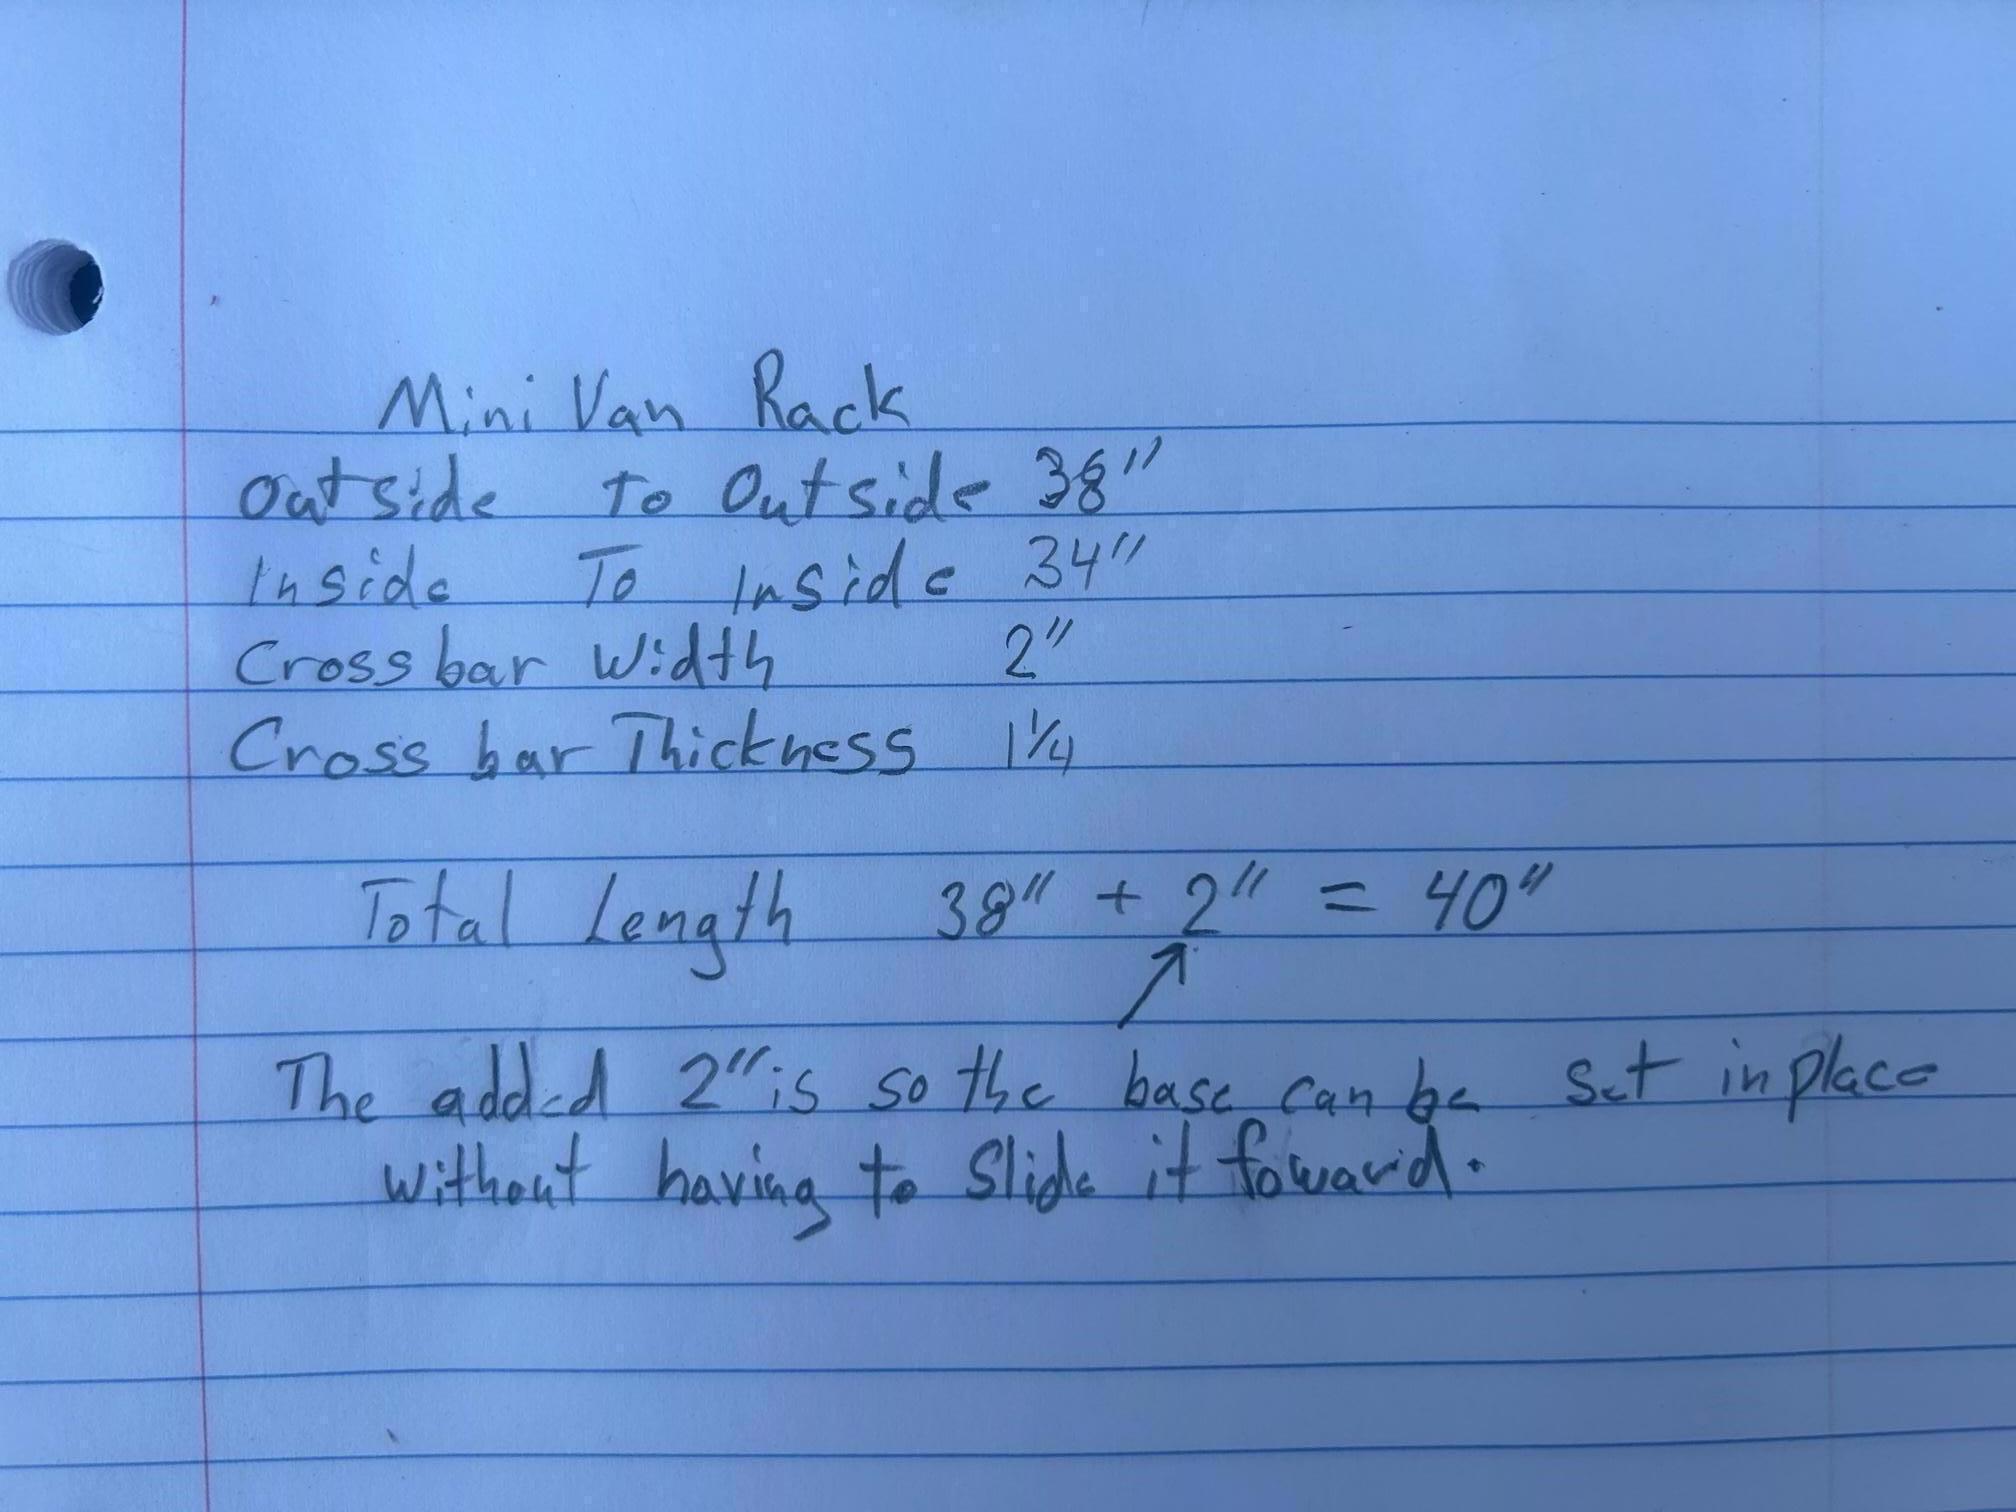 Mini Van Rack
Outside To Outside 38"
Inside To Inside 34"
Cross bar Width 2"
Cross bar Thickness 1 1/4
Total Length 38" + 2" = 40"
The added 2" is so the base can be set in place
without having to Slide it foward.